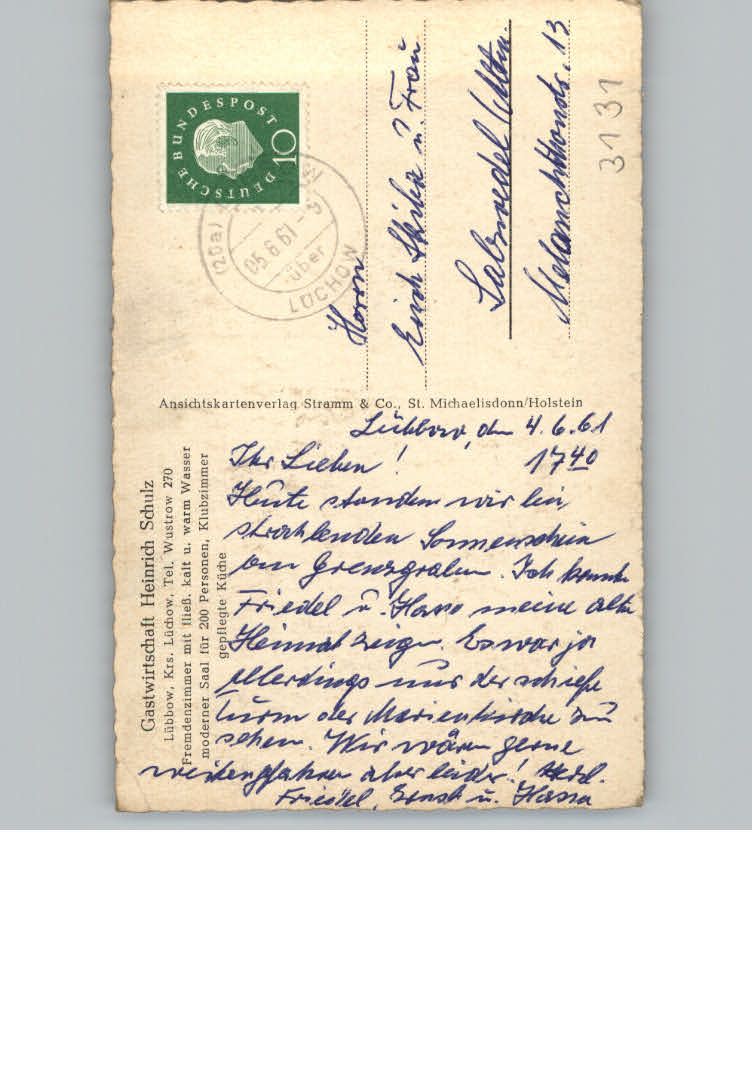 DEUTSCHE BUNDESPOST
10
(20a)
05.6.61-9
über
LÜCHOW
Herrn
Erich u. Frau
Salzwedel / Altm.
Melanchthonstr. 13
3131
Ansichtskartenverlag Stramm & Co., St. Michaelisdonn/Holstein
Gastwirtschaft Heinrich Schulz
Lübbow, Krs. Lüchow, Tel. Wustrow 270
Fremdenzimmer mit fließ. kalt u. warm Wasser
moderner Saal für 200 Personen, Klubzimmer
gepflegte Küche
Lübbow, den 4.6.61
Ihr Lieben! 17 40
Heute standen wir bei
strahlenden Sonnenschein
am Grenzgraben. Ich konnte
Friedel u. Hasso meine alte
Heimat zeigen. Es war ja
allerdings nur der schiefe
Turm der Marienkirche zu
sehen. Wir wären gerne
weitergefahren aber leider! Herzl.
Friedel, Ernst u. Hasso